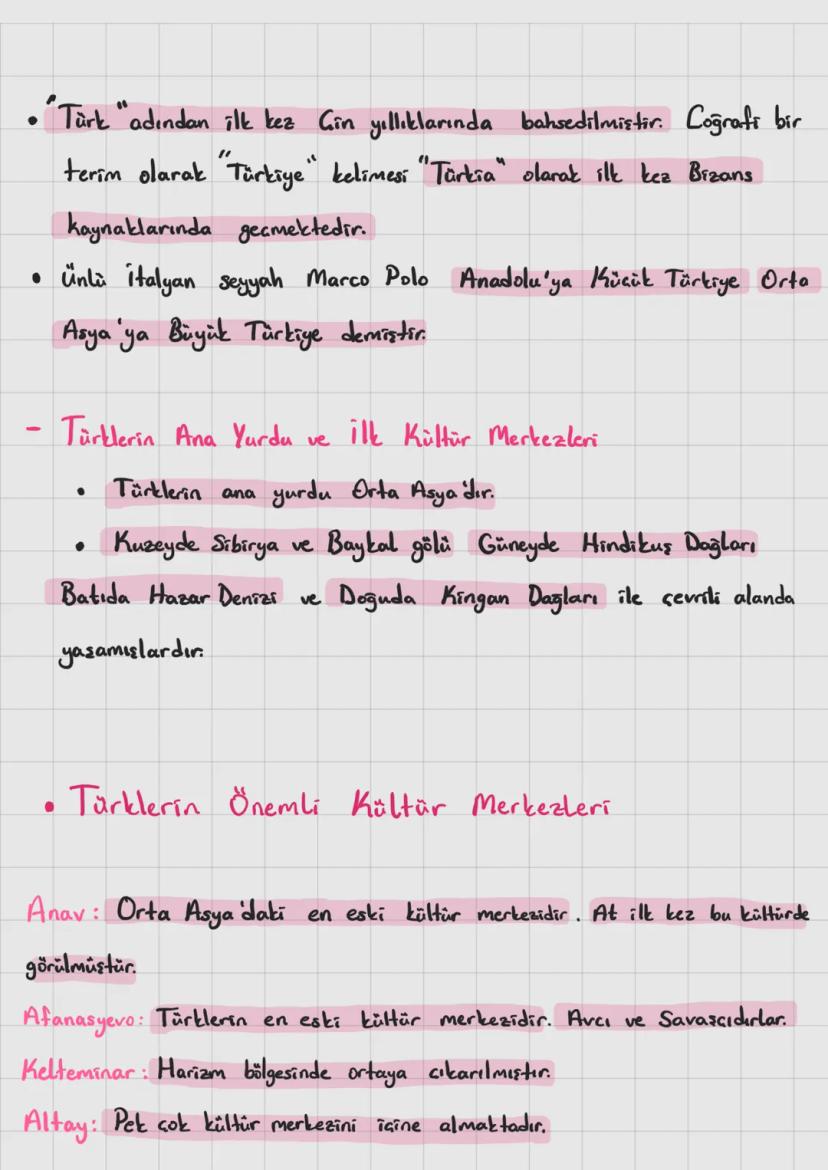 • "Türk" adından ilk kez Çin yıllıklarında bahsedilmiştir. Coğrafi bir
terim olarak "Türkiye" kelimesi "Türkia" olarak ilk kez Bizans
kaynaklarında geçmektedir.
• Ünlü İtalyan seyyah Marco Polo Anadolu'ya Küçük Türkiye Orta
Asya'ya Büyük Türkiye demiştir.
- Türklerin Ana Yurdu ve İlk Kültür Merkezleri
• Türklerin ana yurdu Orta Asya'dır.
• Kuzeyde Sibirya ve Baykal gölü Güneyde Hindikuş Dağları
Batıda Hazar Denizi ve Doğuda Kingan Dağları ile çevrili alanda
yaşamışlardır.
• Türklerin Önemli Kültür Merkezleri
Anav: Orta Asya'daki en eski kültür merkezidir. At ilk kez bu kültürde
görülmüştür.
Afanasyevo: Türklerin en eski kültür merkezidir. Avcı ve Savaşçıdırlar.
Kelteminar: Harizm bölgesinde ortaya çıkarılmıştır.
Altay: Pek çok kültür merkezini içine almaktadır.